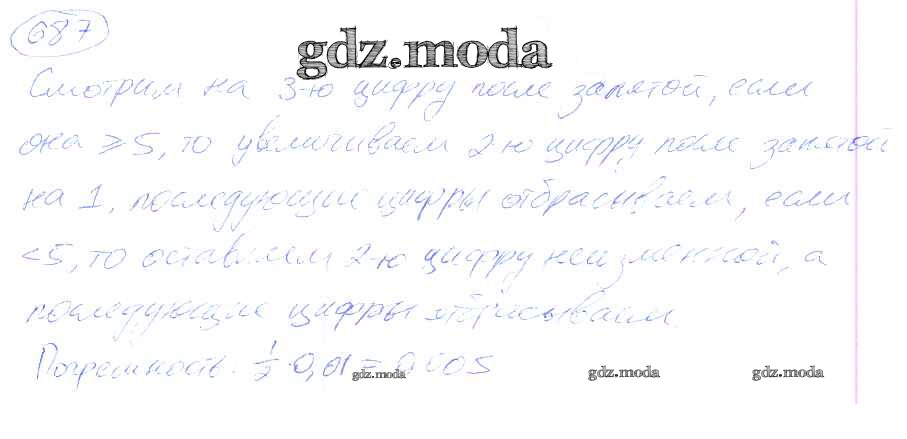 687
gdz.moda
Смотрим на 3-ю цифру после запятой, если
она ≥5, то увеличиваем 2-ю цифру после запятой
на 1, последующие цифры отбрасываем, если
<5, то оставляем 2-ю цифру неизменной, а
последующие цифры отбрасываем.
Погрешность. 1/2 · 0,01 = 0,005
gdz.moda gdz.moda gdz.moda